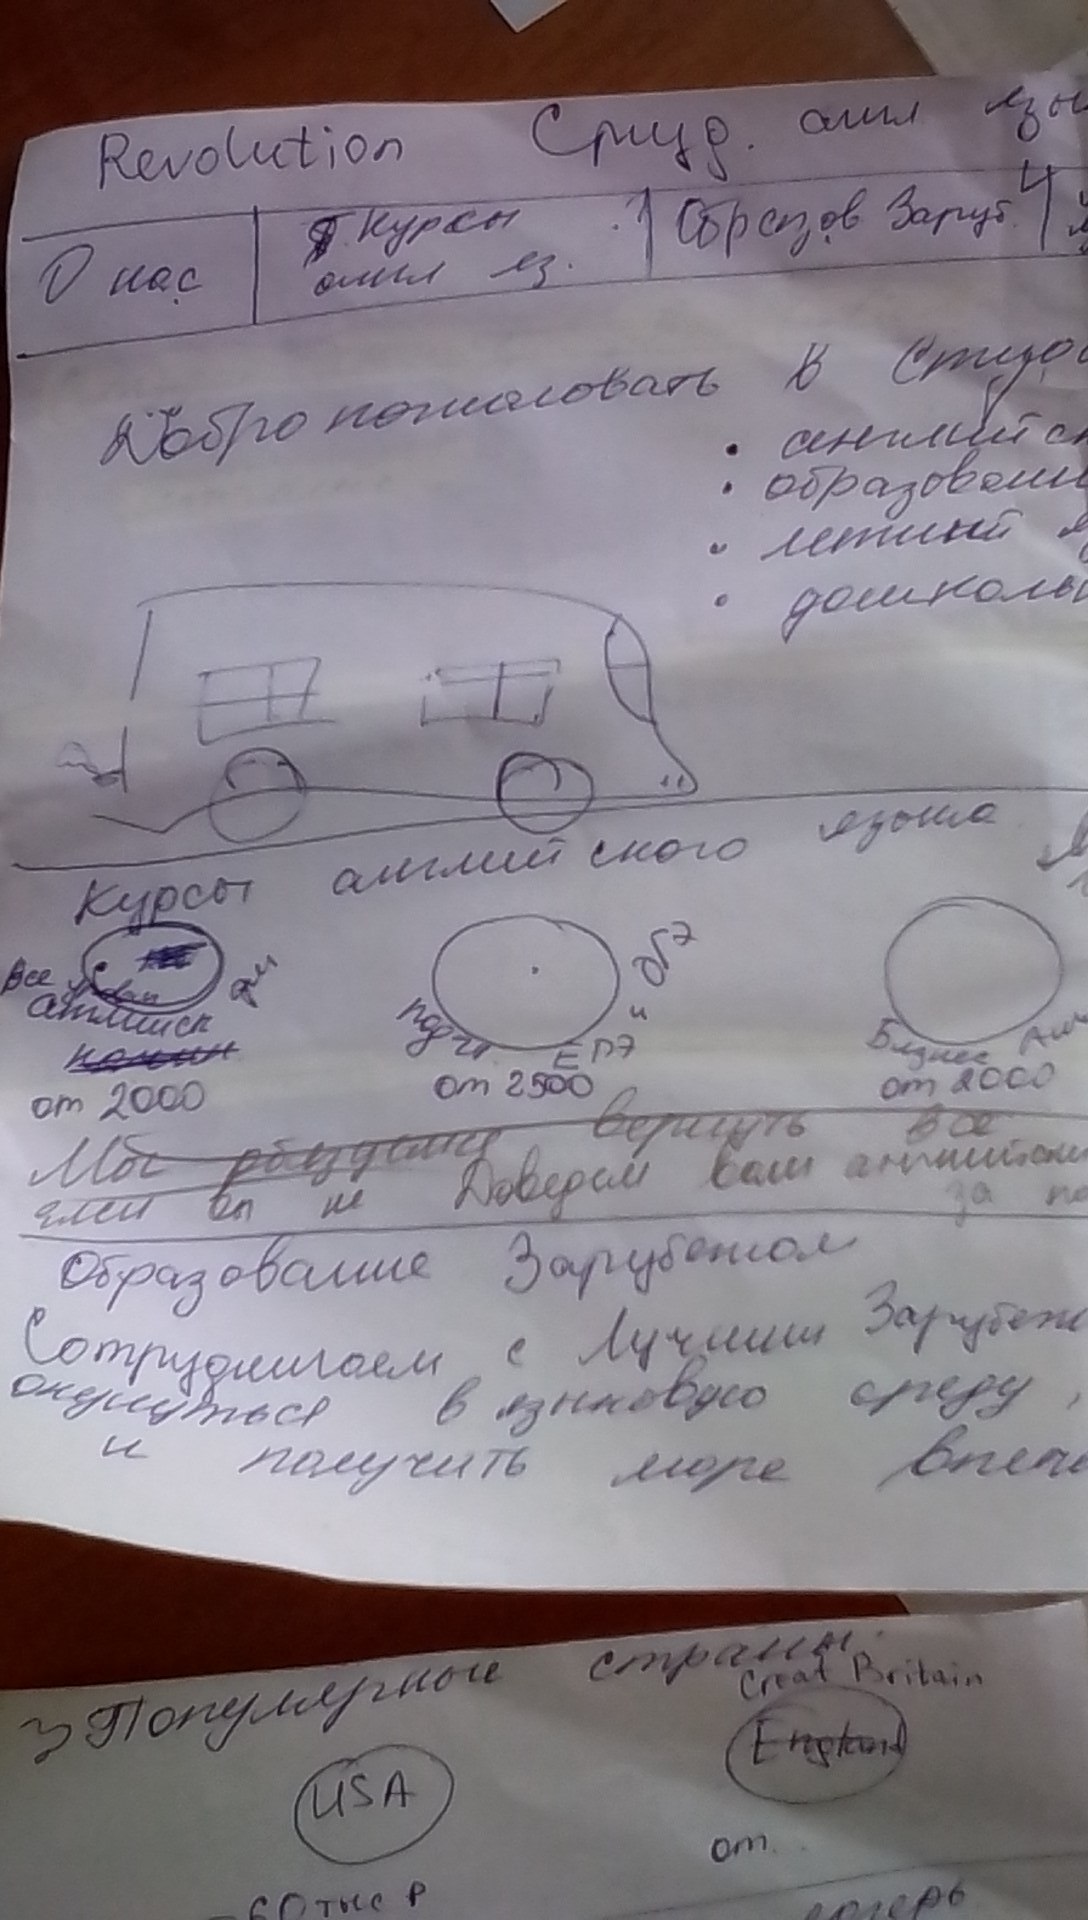 Revolution Студ. англ язы
О нас Курсы англ яз. Образов Заруб.
Добро пожаловать в Студ
• английск
• образовани
• летний я
• дошколь
Курсы английского языка
Все уровни
английск
для
от 2000
подг.
ЕГЭ и ОГЭ
от 2500
Бизнес Анг
от 2000
Мы вернуть все
если вы не Доведем ваш английский
за по
Образование Зарубежом
Сотрудничаем с Лучшими Зарубеж
окунуться в языковую среду,
и получить море впеч
Популярные страны.
Great Britain
England
USA
от
60 тыс р
лагерь